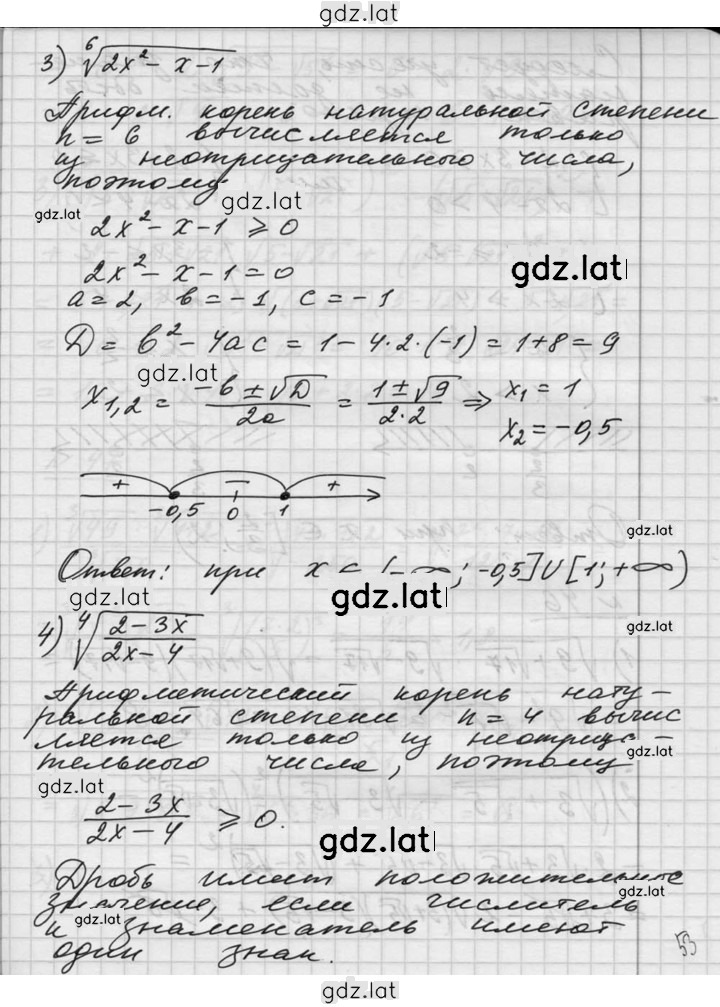 gdz.lat
3) ⁶√(2x² - x - 1)
Арифм. корень натуральной степени
n = 6 вычисляется только
из неотрицательного числа,
поэтому
gdz.lat gdz.lat
2x² - x - 1 ⩾ 0
2x² - x - 1 = 0 gdz.lat
a = 2, b = -1, c = -1
D = b² - 4ac = 1 - 4·2·(-1) = 1+8 = 9
gdz.lat
x₁,₂ = (-b ± √D)/(2a) = (1 ± √9)/(2·2) ⇒ x₁ = 1
x₂ = -0,5
+ − +
-0,5 0 1
gdz.lat
Ответ: при x ∈ (-∞; -0,5] U [1; +∞)
gdz.lat gdz.lat
4) ⁴√((2-3x)/(2x-4)) gdz.lat
Арифметический корень нату-
ральной степени n = 4 вычис
ляется только из неотрица-
тельного числа, поэтому gdz.lat
gdz.lat
(2-3x)/(2x-4) ⩾ 0. gdz.lat
Дробь имеет положительные
значение, если числитель gdz.lat
и gdz.lat знаменатель имеют
один знак. 53
gdz.lat